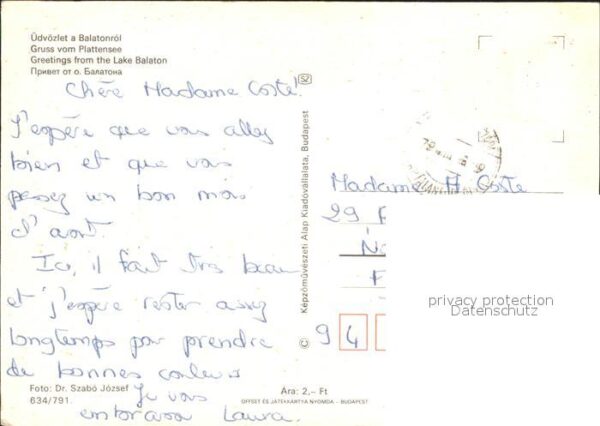 Üdvözlet a Balatonról
Gruss vom Plattensee
Greetings from the Lake Balaton
Привет от о. Балатона
Chère Madame Coste!
J'espère que vous allez
bien et que vous
passez un bon mois
d'août.
Ici, il fait très beau
et j'espère rester assez
longtemps pour prendre
de bonnes couleurs
Je vous
embrasse Laura.
Foto: Dr. Szabó József
634/791.
Ára: 2,– Ft
OFFSET ÉS JÁTÉKKÁRTYA NYOMDA – BUDAPEST
© Képzőművészeti Alap Kiadóvállalata, Budapest
SZ
Madame H Coste
29
94
privacy protection
Datenschutz